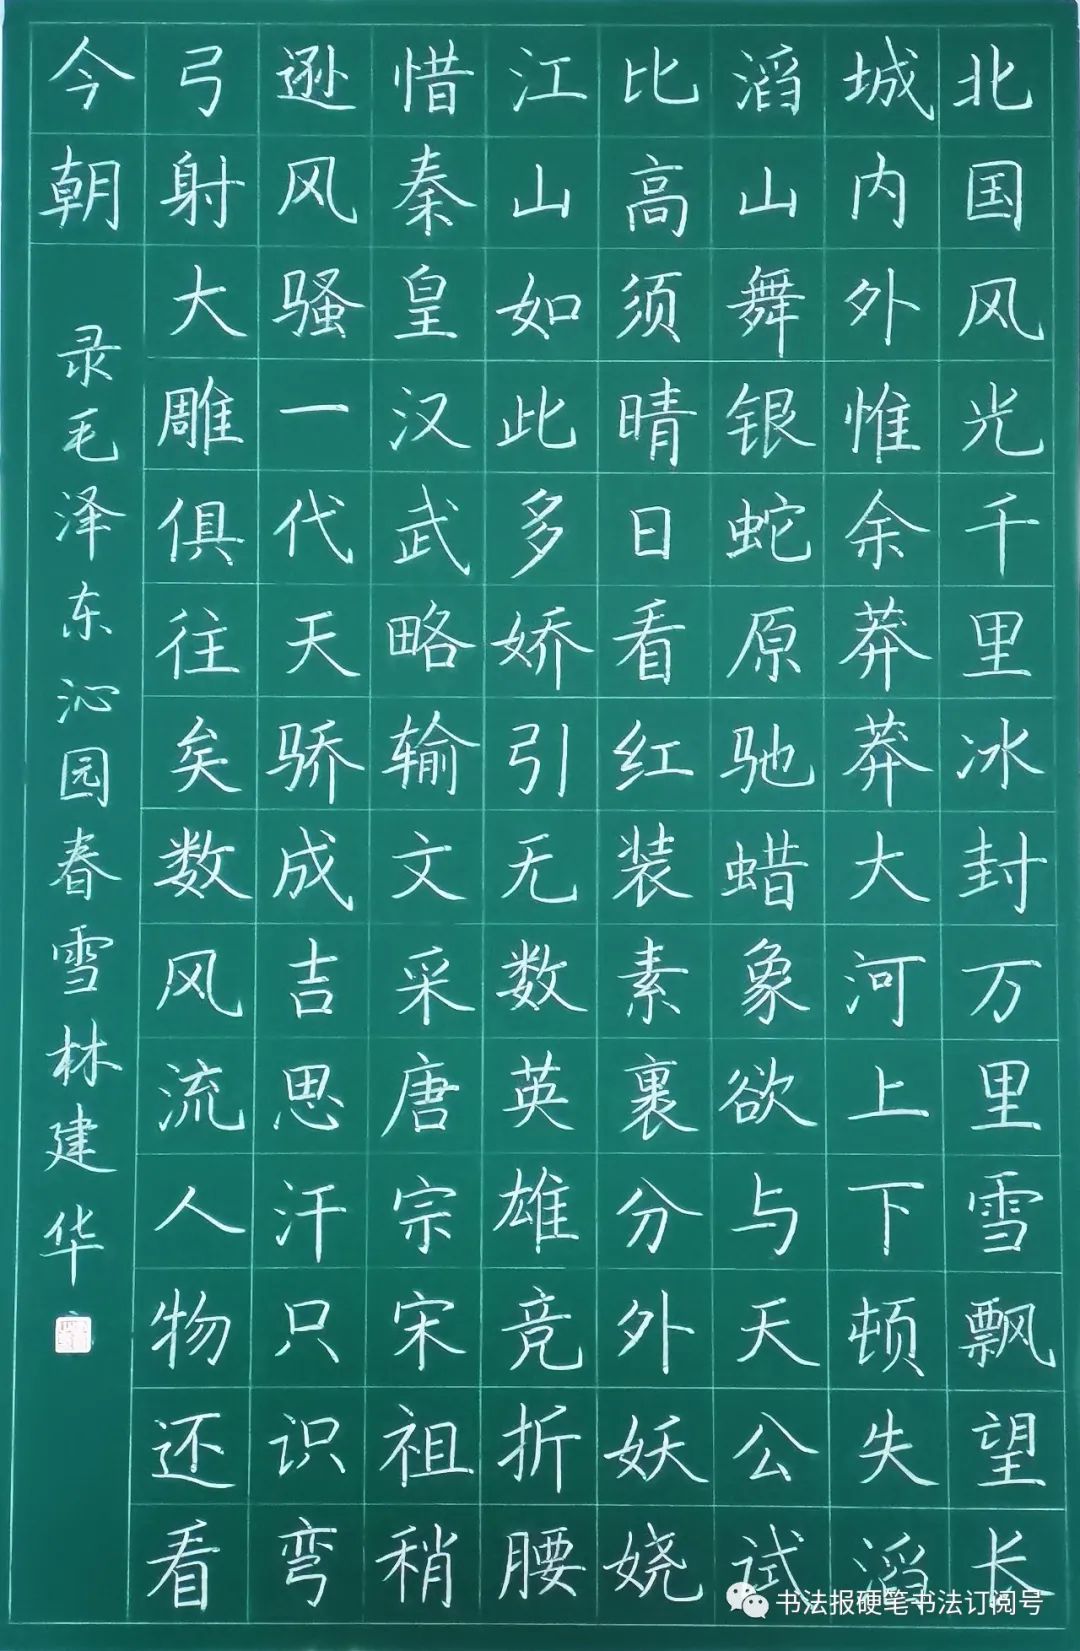 北国风光千里冰封万里雪飘望长
城内外惟余莽莽大河上下顿失滔
滔山舞银蛇原驰蜡象欲与天公试
比高须晴日看红装素裹分外妖娆
江山如此多娇引无数英雄竞折腰
惜秦皇汉武略输文采唐宗宋祖稍
逊风骚一代天骄成吉思汗只识弯
弓射大雕俱往矣数风流人物还看
今朝
录毛泽东沁园春雪林建华
书法报硬笔书法订阅号